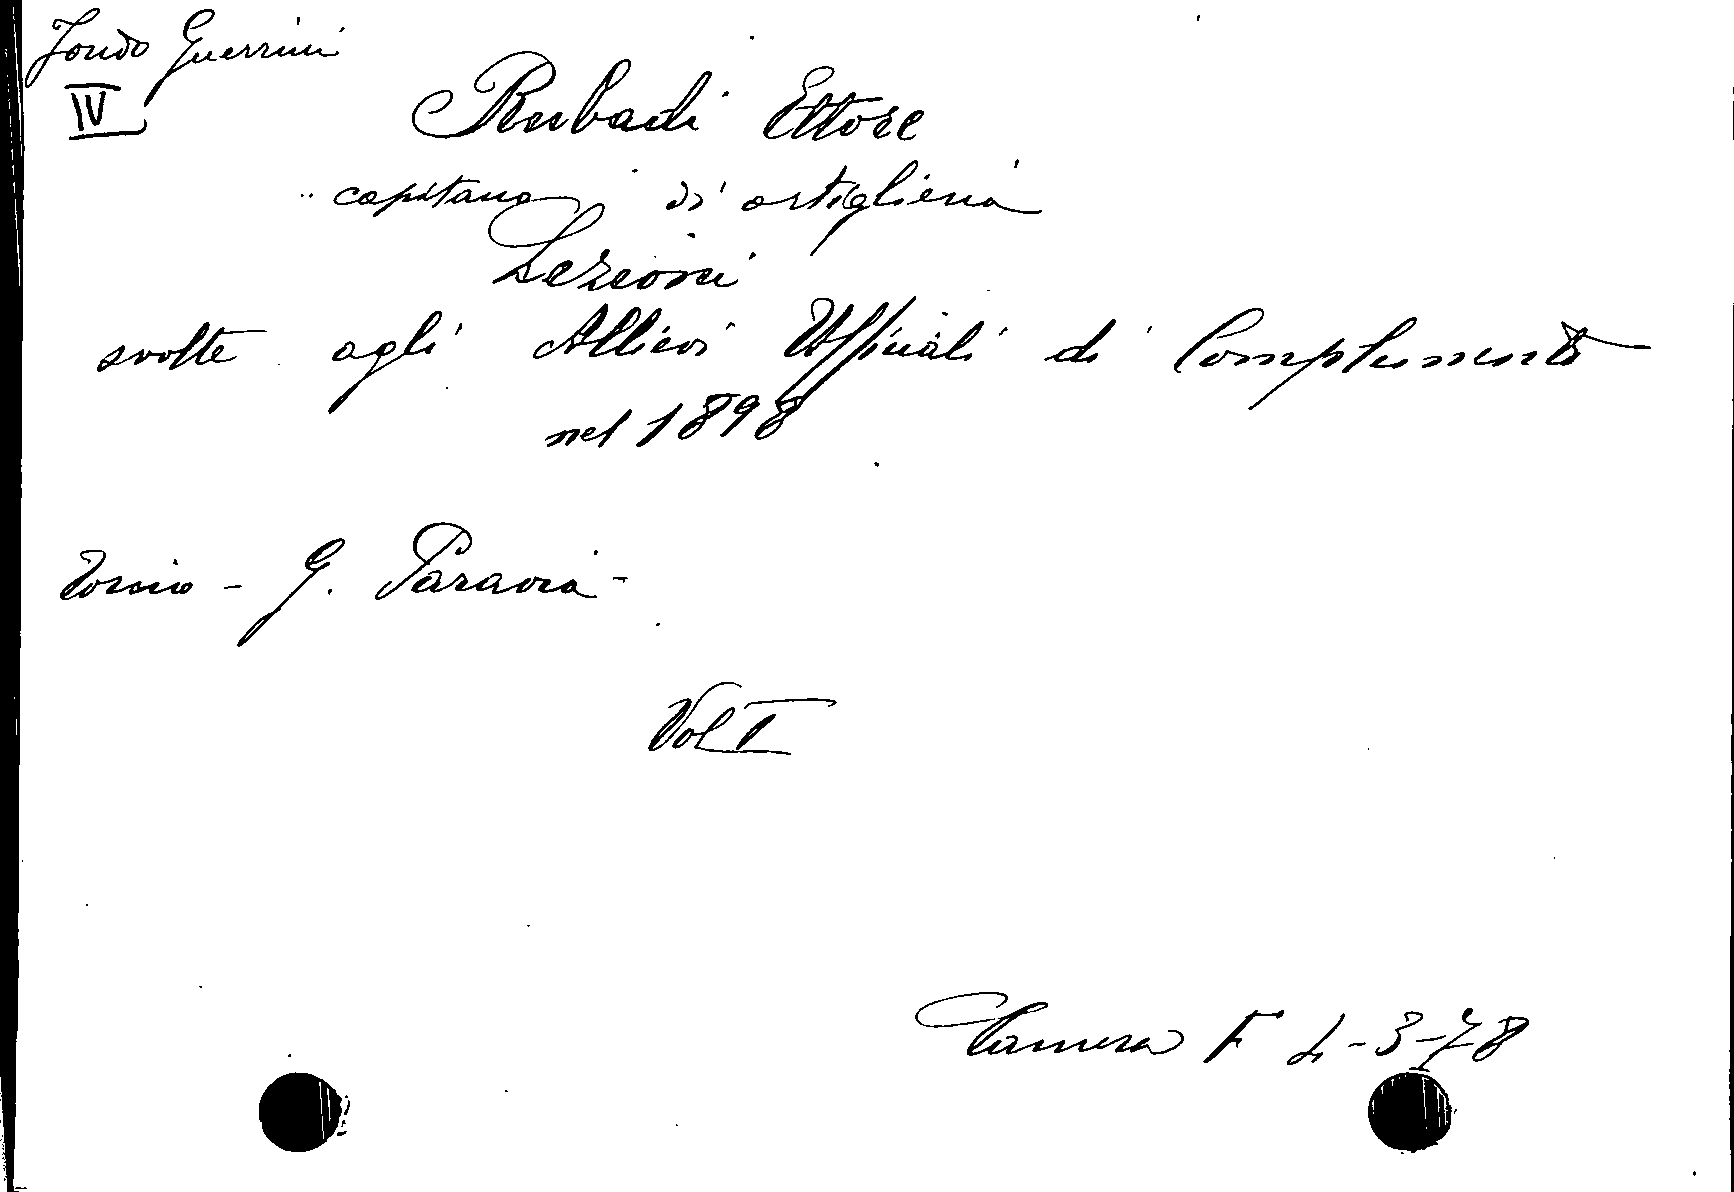 Fondo Guerrini
IV
Rubadi Ettore
capitano di artiglieria
Lezioni
svolte agli Allievi Ufficiali di Complemento
nel 1898
Torino - G. Paravia -
Vol I
Camera F L-3-78